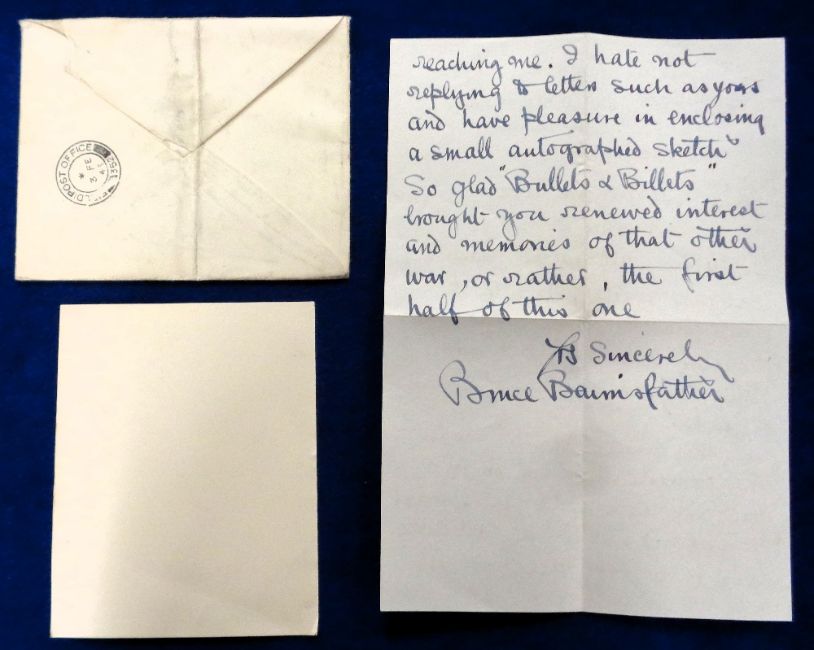 FIELD POST OFFICE
2 FE
43
reaching me. I hate not
replying to letters such as yours
and have pleasure in enclosing
a small autographed sketch
So glad "Bullets & Billets"
brought you renewed interest
and memories of that other
war, or rather, the first
half of this one
Yrs Sincerely
Bruce Bairnsfather